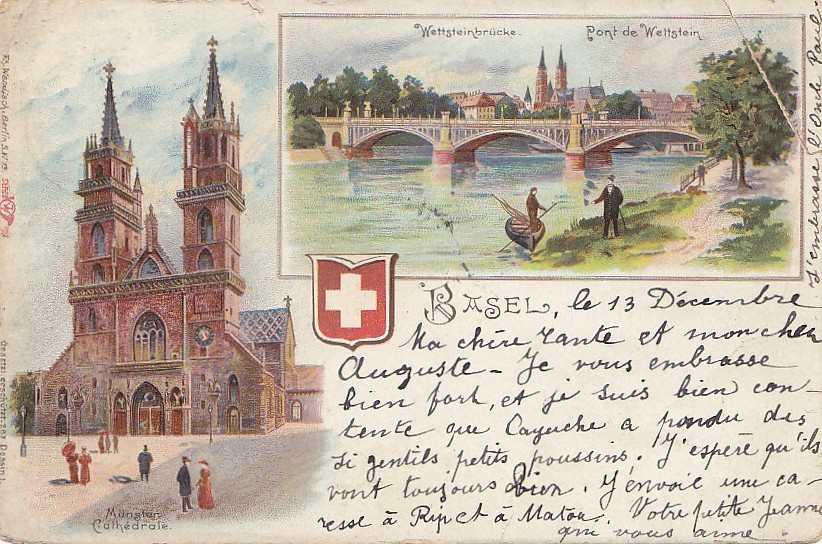 Wettsteinbrücke. Pont de Wettstein
Münster
Cathédrale.
BASEL, le 13 Décembre
Ma chère Tante et mon cher
Auguste – Je vous embrasse
bien fort, et je suis bien con-
tente que Cayuche a pondu des
si gentils petits poussins. J'espère qu'ils
vont toujours bien. J'envoie une ca-
resse à Rip et à Matou. Votre petite Jeanne
qui vous aime
J'embrasse l'Oncle Paul.